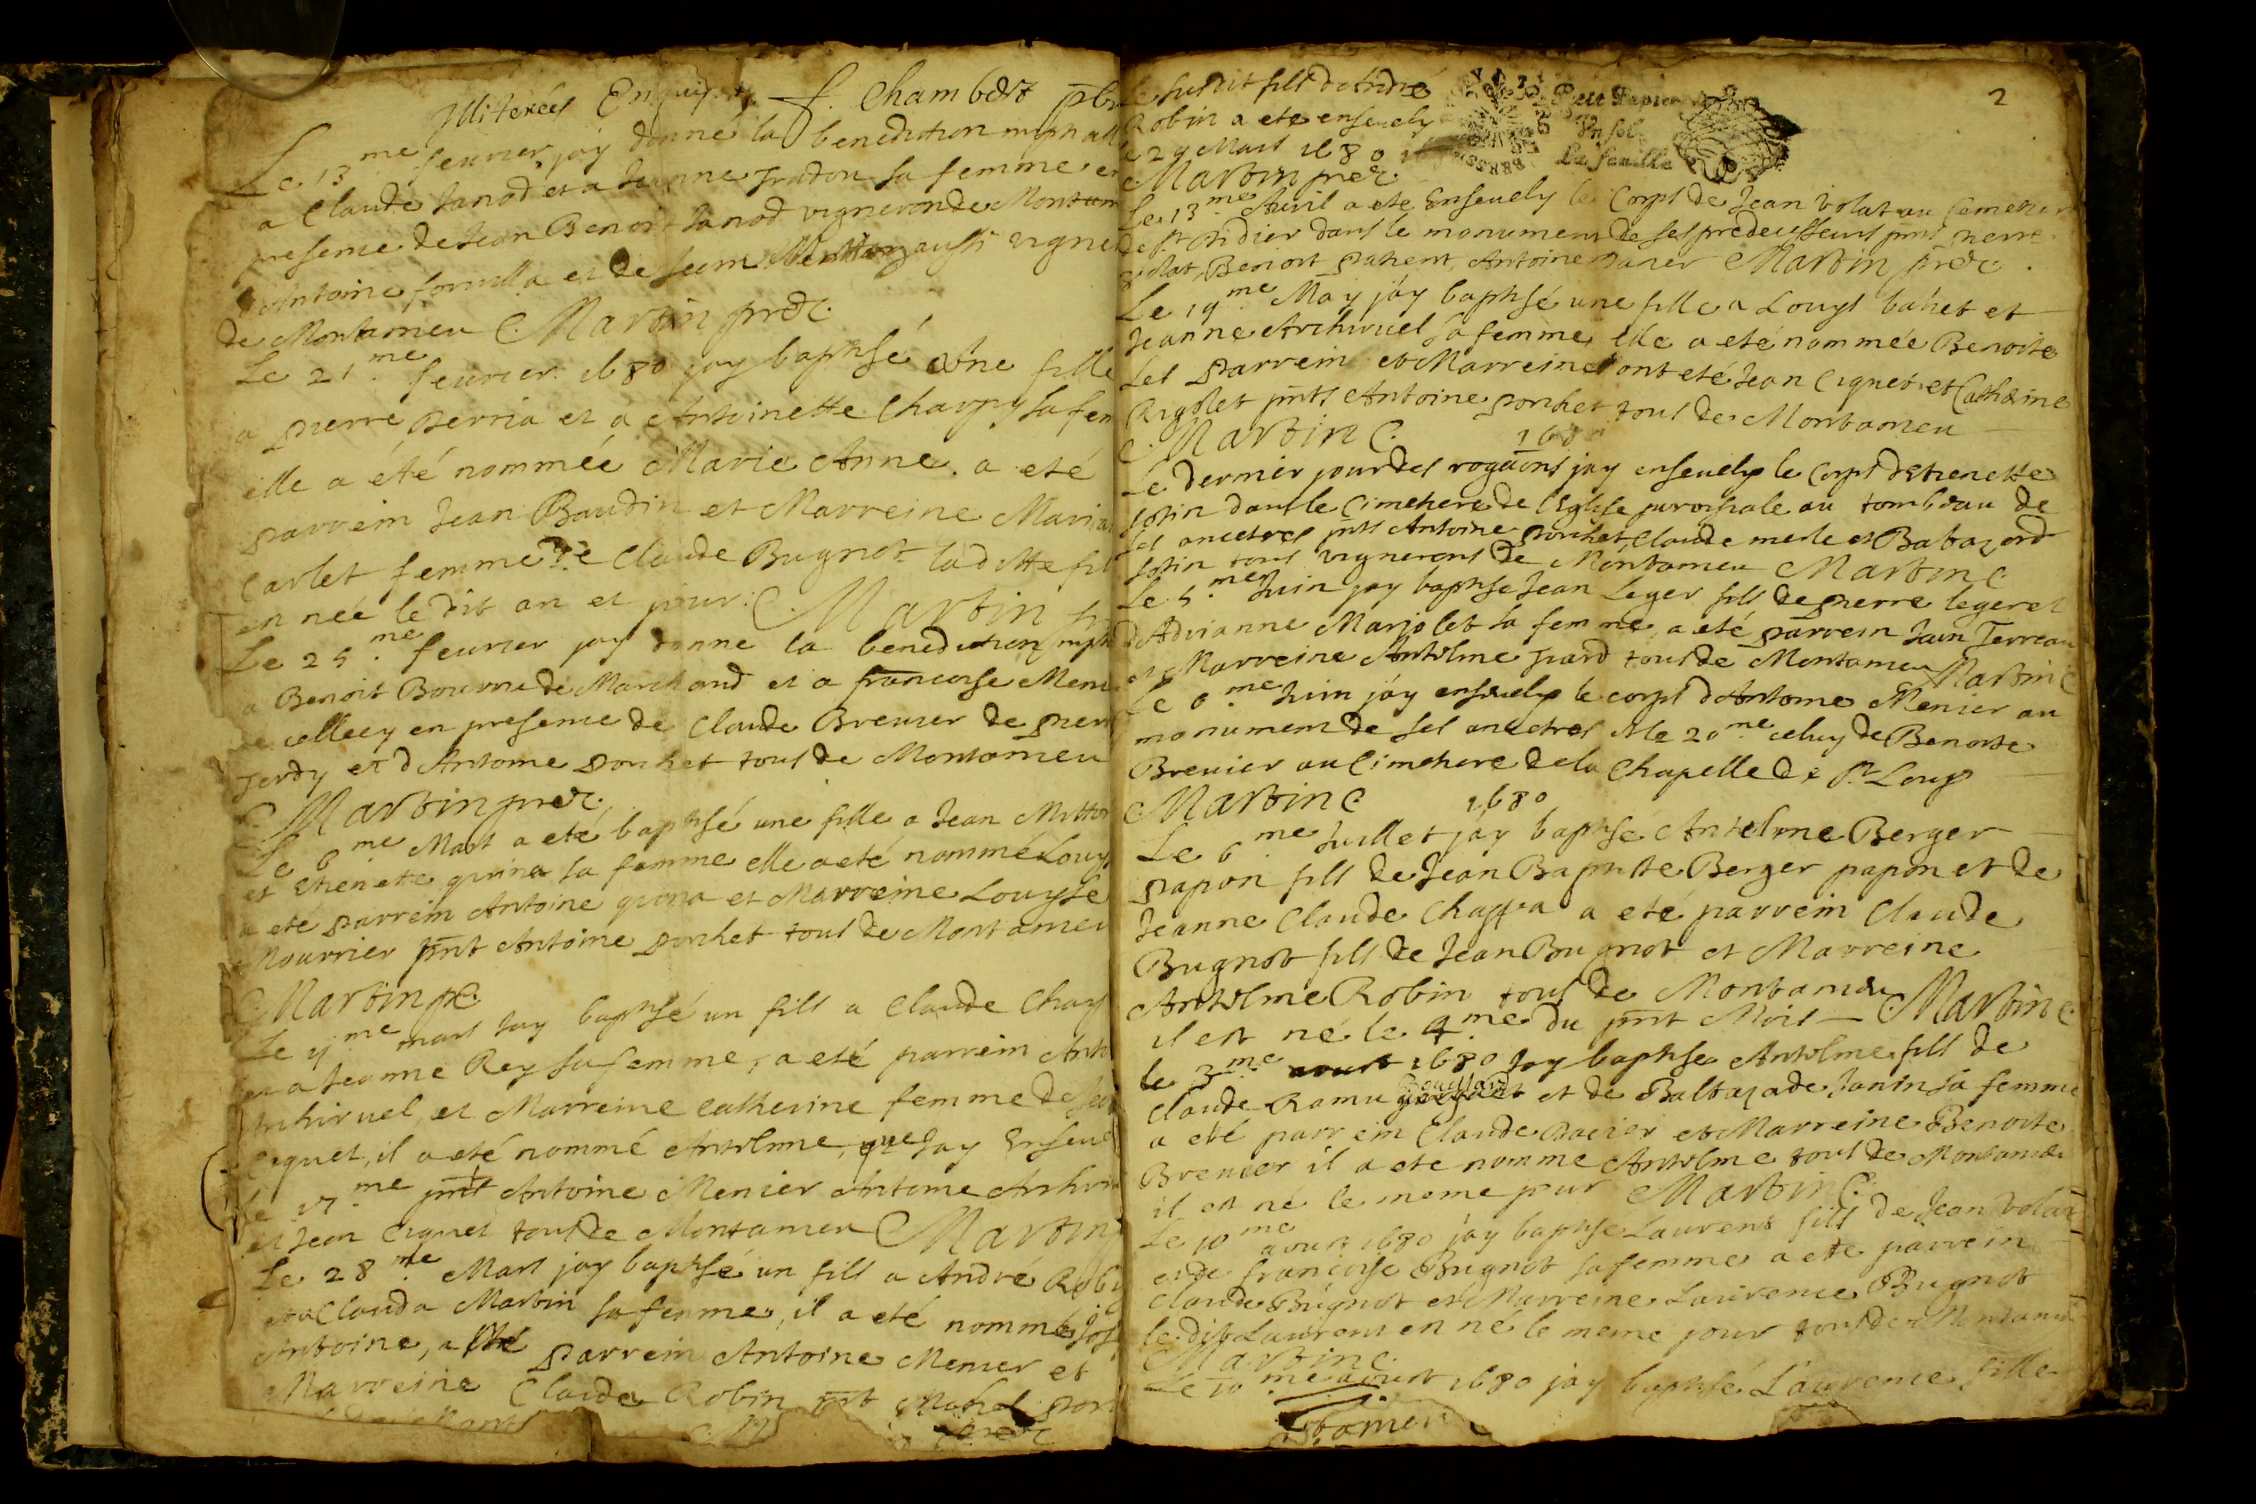 Illiterées Enquis f. Chambert pbr
Le 13.me feurier jay donné la benediction nuptiall
a Claude Janod et a Jeanne sa femme en
presence de Jean Benoit Janod vigneron de Montam
Antoine et de aussi vigne
de Montameu C. Martin predr.
Le 21.me feurier 1680 jay baptisé Une fille
a pierre perria et a Antoinette Charpy sa fem
elle a été nommée Marie Anne. a eté
parrein Jean Baudin et Marreine Maria
Carlet femme de Claude Bugnot ladite fil
en née le dit an et jour. C. Martin
Le 25.me feurier jay donne la benediction nupti
a Benoit de Marchand et a francoise Meni
de cellecy en presence de Claude Breuier de pierr
et d Antoine ponhet tous de Montameu
C. Martin predr.
Le 6.me Mars a eté baptisé une fille a Jean Mitton
et Etienette sa femme elle a eté nommé Louys
a eté parrein Antoine et Marreine Louyse
Mourrier pnt Antoine ponhet tous de Montameu
C. Martin pr.
Le me mars Jay baptisé un fils a Claude Chary
et a Jeanne Rey sa femme, a eté parrein Anto
Archiruel, et Marreine Catherine femme de Jean
Cignet, il a eté nommé Antelme, que Jay Enseuel
le 17.me pnt Antoine Menier Antoine Archiru
et Jean Cignet tous de Montameu C Martin
Le 28.me Mars jay baptisé un fils a André Robi
et a Clauda Martin sa femme, il a eté nommé Jos
Antoine, a eté parrein Antoine Menier et
Marreine Clauda Robin pnt Michel pon
Le susdit fils de André
Robin a ete enseuely
le 29 Mars 1680
C. Martin predr.
Petit Papier
Un sol
La feuille
2
Le 13.me Auril a ete Enseuely le Corps de Jean Volat au Cemetier
de St Didier dans le monument de ses predecesseurs pnts pierre
Volat, Benoit patient, Antoine pacier C Martin predr.
Le 19.me May jáy baptisé une fille a Louys bahet et
Jeanne Archiruel sa femme elle a eté nommée Benoite
Les parrein et Marreine ont eté Jean Cignet et Catherine
Rigolet pnts Antoine ponhet tous de Montameu
C. Martin C. 1680
Le dernier jour des rogaōns jay enseuely le Corps d Etienette
Jotin dans le Cimetiere de l Eglise paroissiale au tombeau de
ses ancetres pnts Antoine ponhet Claude merle et Batazard
Jotin tous vignerons de Montameu C Martin C
Le 5.me Juin jay baptise Jean Leger fils de pierre leger et
d Adrianne Marjolet sa femme, a eté parrein Jean Terreau
et Marreine Antelme tous de Montameu Martin C
Le 6.me Juin jáy enseuely le corps d Antoine Menier au
monument de ses ancetres et le 20.me celuy de Benoite
Breuier au Cimetiere de la Chapelle de St. Loup
C Martin C 1680
Le 6.me Juillet jáy baptisé Antelme Berger
papon fils de Jean Baptiste Berger papon et de
Jeanne Claude Chappa a eté parrein Claude
Bugnot fils de Jean Bugnot et Marreine
Antelme Robin tous de Montameu C Martin C
il est né le 4.me du pnt Mois
le 3.me aoust 1680 Jay baptise Antelme fils de
Claude Ramu Goujard et de Baltazade Janin sa femme
a eté parrein Claude pacier et Marreine Benoite
Breuier il a ete nomme Antelme tous de Montameu
il est né le meme jour C Martin C.
Le 10.me aoust 1680 jáy baptise Laurent fils de Jean Volat
et de francoise Bugnot sa femme a ete parrein
Claude Bugnot et Marreine Laurence Bugnot
le dit Laurent en né le meme jour tous de Montameu
C Martin C
Le 10.me aoust 1680 jáy baptisé Laurence fille